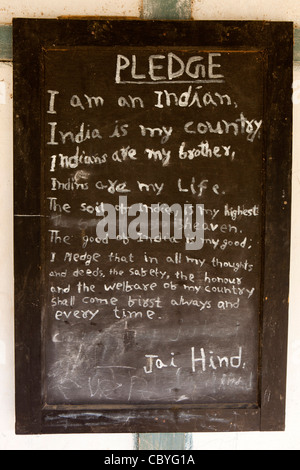 PLEDGE
I am an Indian,
India is my country
Indians are my brother,
Indins are my Life.
The soil of India, is my highest
heaven.
The good of India is my good;
I Pledge that in all my thoughts
and deeds, the sabety, the honour
and the welbare ob my country
shall come birst always and
every time.
Jai Hind.
a
alamy
Image ID: CBYG1A
www.alamy.com